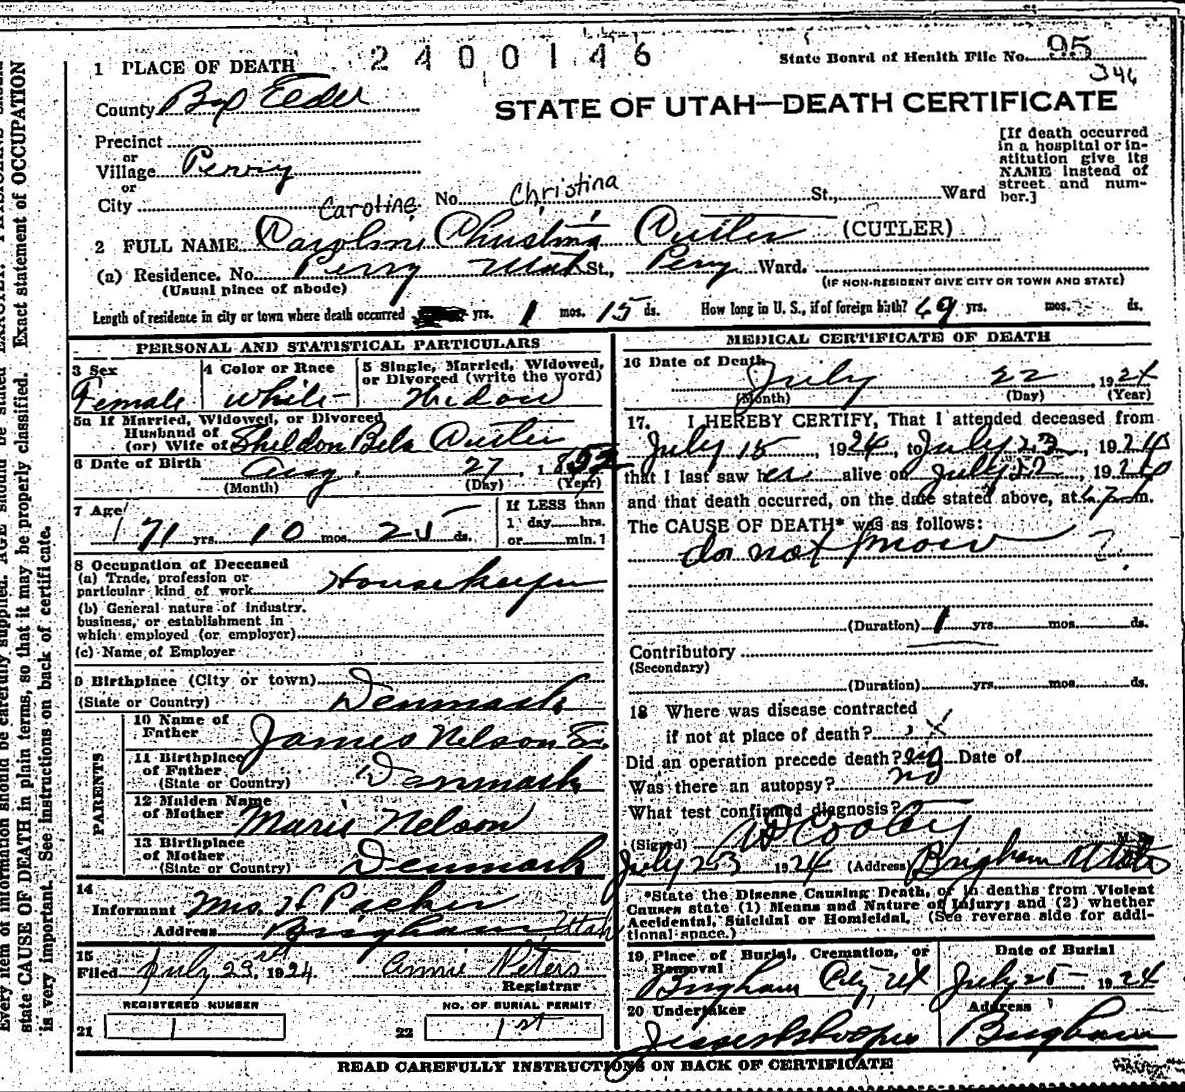 2400146
State Board of Health File No. 95
346
1 PLACE OF DEATH
County Box Elder
STATE OF UTAH—DEATH CERTIFICATE
Precinct
or
Village Perry
or
City
No. St., Ward
[If death occurred in a hospital or institution give its NAME instead of street and number.]
Caroline Christina
2 FULL NAME Caroline Christina Cutler (CUTLER)
(a) Residence. No. Perry Utah St., Perry Ward.
(Usual place of abode)
(IF NON-RESIDENT GIVE CITY OR TOWN AND STATE)
Length of residence in city or town where death occurred yrs. 1 mos. 15 ds. How long in U. S., if of foreign birth? 69 yrs. mos. ds.
PERSONAL AND STATISTICAL PARTICULARS
3 Sex
Female
4 Color or Race
White
5 Single, Married, Widowed,
or Divorced (write the word)
Widow
5a If Married, Widowed, or Divorced
Husband of
(or) Wife of Sheldon Bela Cutler
6 Date of Birth
Aug. 27, 1852
(Month) (Day) (Year)
7 Age
71 yrs. 10 mos. 25 ds.
If LESS than
1 day hrs.
or min.?
8 Occupation of Deceased
(a) Trade, profession or
particular kind of work Housekeeper
(b) General nature of industry.
business, or establishment in
which employed (or employer)
(c) Name of Employer
9 Birthplace (City or town)
(State or Country) Denmark
PARENTS
10 Name of
Father James Nelson Sr.
11 Birthplace
of Father
(State or Country) Denmark
12 Maiden Name
of Mother Marie Nelson
13 Birthplace
of Mother
(State or Country) Denmark
14
Informant Mrs. H Packer
Address Brigham, Utah
15
Filed July 23rd, 1924 Annie Peters
Registrar
REGISTERED NUMBER
21 1
NO. OF BURIAL PERMIT
22 1st
MEDICAL CERTIFICATE OF DEATH
16 Date of Death
July 22, 1924
(Month) (Day) (Year)
17. I HEREBY CERTIFY, That I attended deceased from
July 15, 1924, to July 23, 1924
that I last saw her alive on July 22, 1924
and that death occurred, on the date stated above, at m.
The CAUSE OF DEATH* was as follows:
do not know ?
(Duration) 1 yrs. mos. ds.
Contributory
(Secondary)
(Duration) yrs. mos. ds.
18 Where was disease contracted
if not at place of death? X
Did an operation precede death? no Date of
Was there an autopsy? no
What test confirmed diagnosis?
(Signed) M. D.
July 23 1924 (Address) Brigham Utah
*State the Disease Causing Death, or in deaths from Violent
Causes state (1) Means and Nature of Injury; and (2) whether
Accidental, Suicidal or Homicidal. (See reverse side for addi-
tional space.)
19 Place of Burial, Cremation, or
Removal
Brigham City, Ut
Date of Burial
July 25 1924
20 Undertaker
Address
Brigham
READ CAREFULLY INSTRUCTIONS ON BACK OF CERTIFICATE
Every item of information should be carefully supplied. AGE should be stated EXACTLY. PHYSICIANS should
state CAUSE OF DEATH in plain terms, so that it may be properly classified. Exact statement of OCCUPATION
is very important. See instructions on back of certificate.